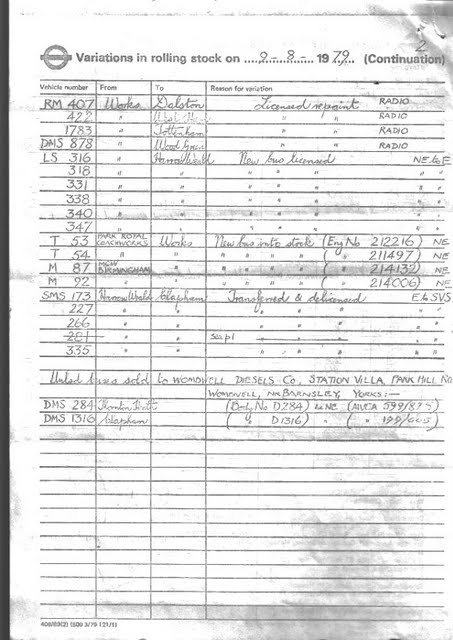 2
Variations in rolling stock on 9-8- 1979. (Continuation)
Vehicle number From To Reason for variation
RM 407 Works Dalston Licensed repaint RADIO
422 " West Ham " " RADIO
1783 " Tottenham " " RADIO
DMS 878 " Wood Green " " RADIO
LS 316 " Harrow Weald New bus licensed NE to E
318 " " " " " "
331 " " " " " "
338 " " " " " "
340 " " " " " "
347 " " " " " "
T 53 PARK ROYAL COACHWORKS Works New bus into stock (Eng No 212216) NE
T 54 " " " " " " ( " 211497) NE
M 87 MCW BIRMINGHAM " " " " " ( " 214132) NE
M 92 " " " " " " ( " 214006) NE
SMS 173 Harrow Weald Clapham Transferred & delicensed E to SVS
227 " " " " "
266 " " " " "
281 " " " " "
335 " " " " "
buses sold to WOMBWELL DIESELS Co, STATION VILLA, PARK HILL
WOMBWELL, NR BARNSLEY, YORKS:—
DMS 284 Thornton Heath (Body No D284) to NE
DMS 1316 Clapham ( " D1316) "